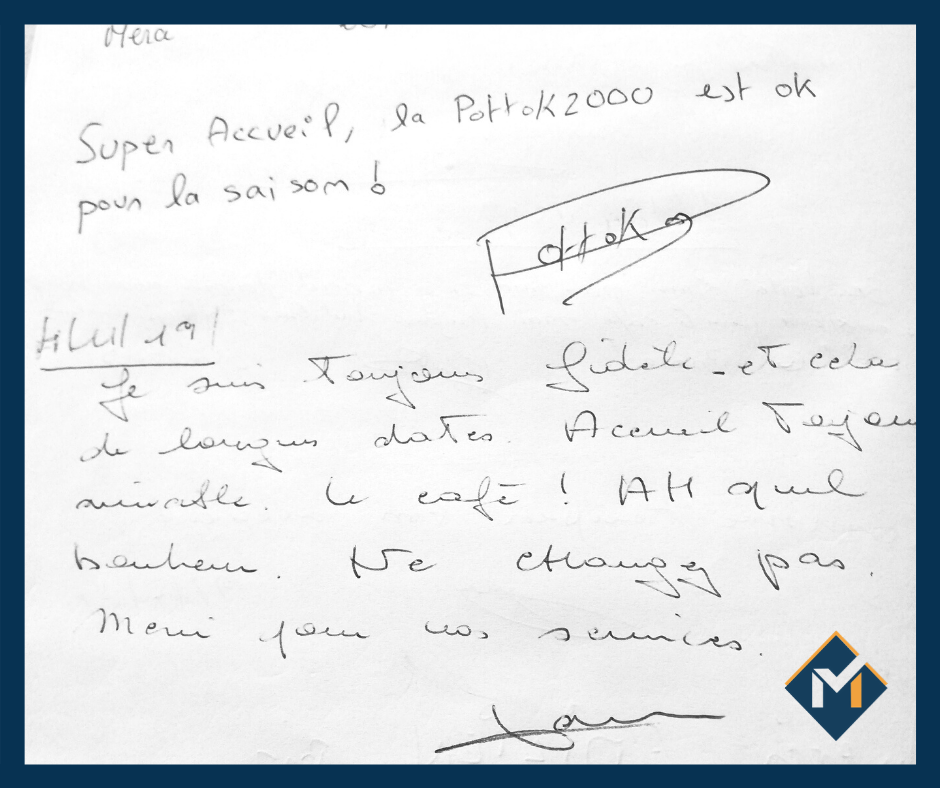 Super Accueil, la Pottok2000 est ok
pour la saison !
Pottok
Je suis toujours fidèle - et cela
de longues dates. Accueil Toujou
Le café ! AH quel
bonheur. Ne changez pas.
Merci pour vos services.
M